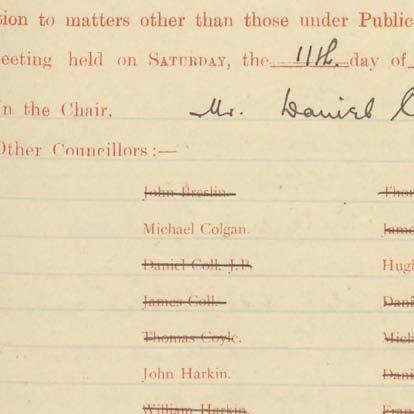 tion to matters other than those under Public
eeting held on SATURDAY, the 11th. day of
n the Chair, Mr. Daniel C
Other Councillors:—
John Breslin. Thom
Michael Colgan. Jame
Daniel Coll, J.P. Hugh
James Coll. Dani
Thomas Coyle. Mich
John Harkin. Dani
William Harkin. Fran